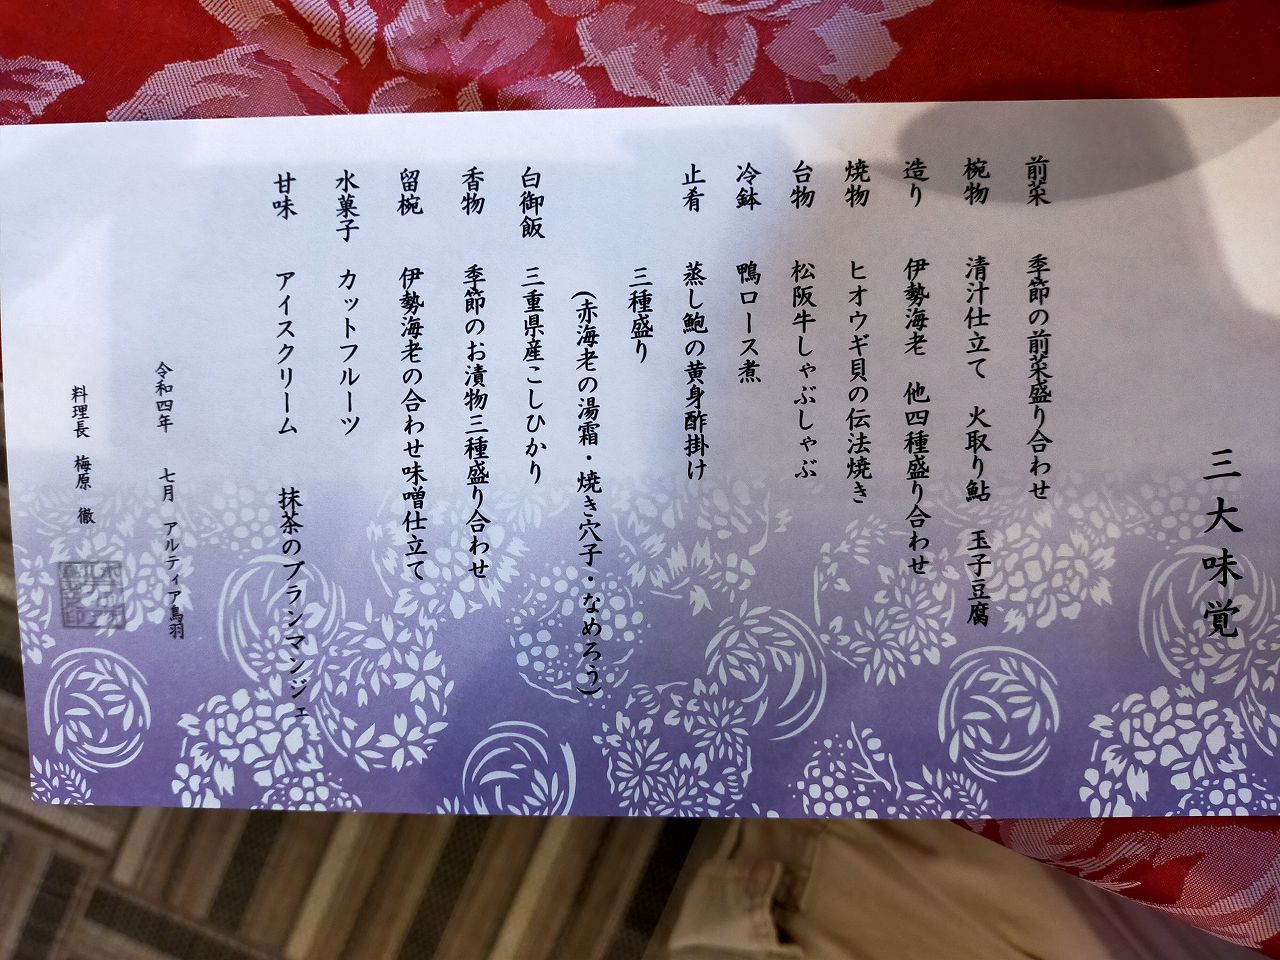 三大味覚
前菜　季節の前菜盛り合わせ
椀物　清汁仕立て　火取り鮎　玉子豆腐
造り　伊勢海老　他四種盛り合わせ
焼物　ヒオウギ貝の伝法焼き
台物　松阪牛しゃぶしゃぶ
冷鉢　鴨ロース煮
止肴　蒸し鮑の黄身酢掛け
三種盛り
(赤海老の湯霜・焼き穴子・なめろう)
白御飯　三重県産こしひかり
香物　季節のお漬物三種盛り合わせ
留椀　伊勢海老の合わせ味噌仕立て
水菓子　カットフルーツ
甘味　アイスクリーム　抹茶のブランマンジェ
令和四年　七月　アルティア鳥羽
料理長　梅原　徹